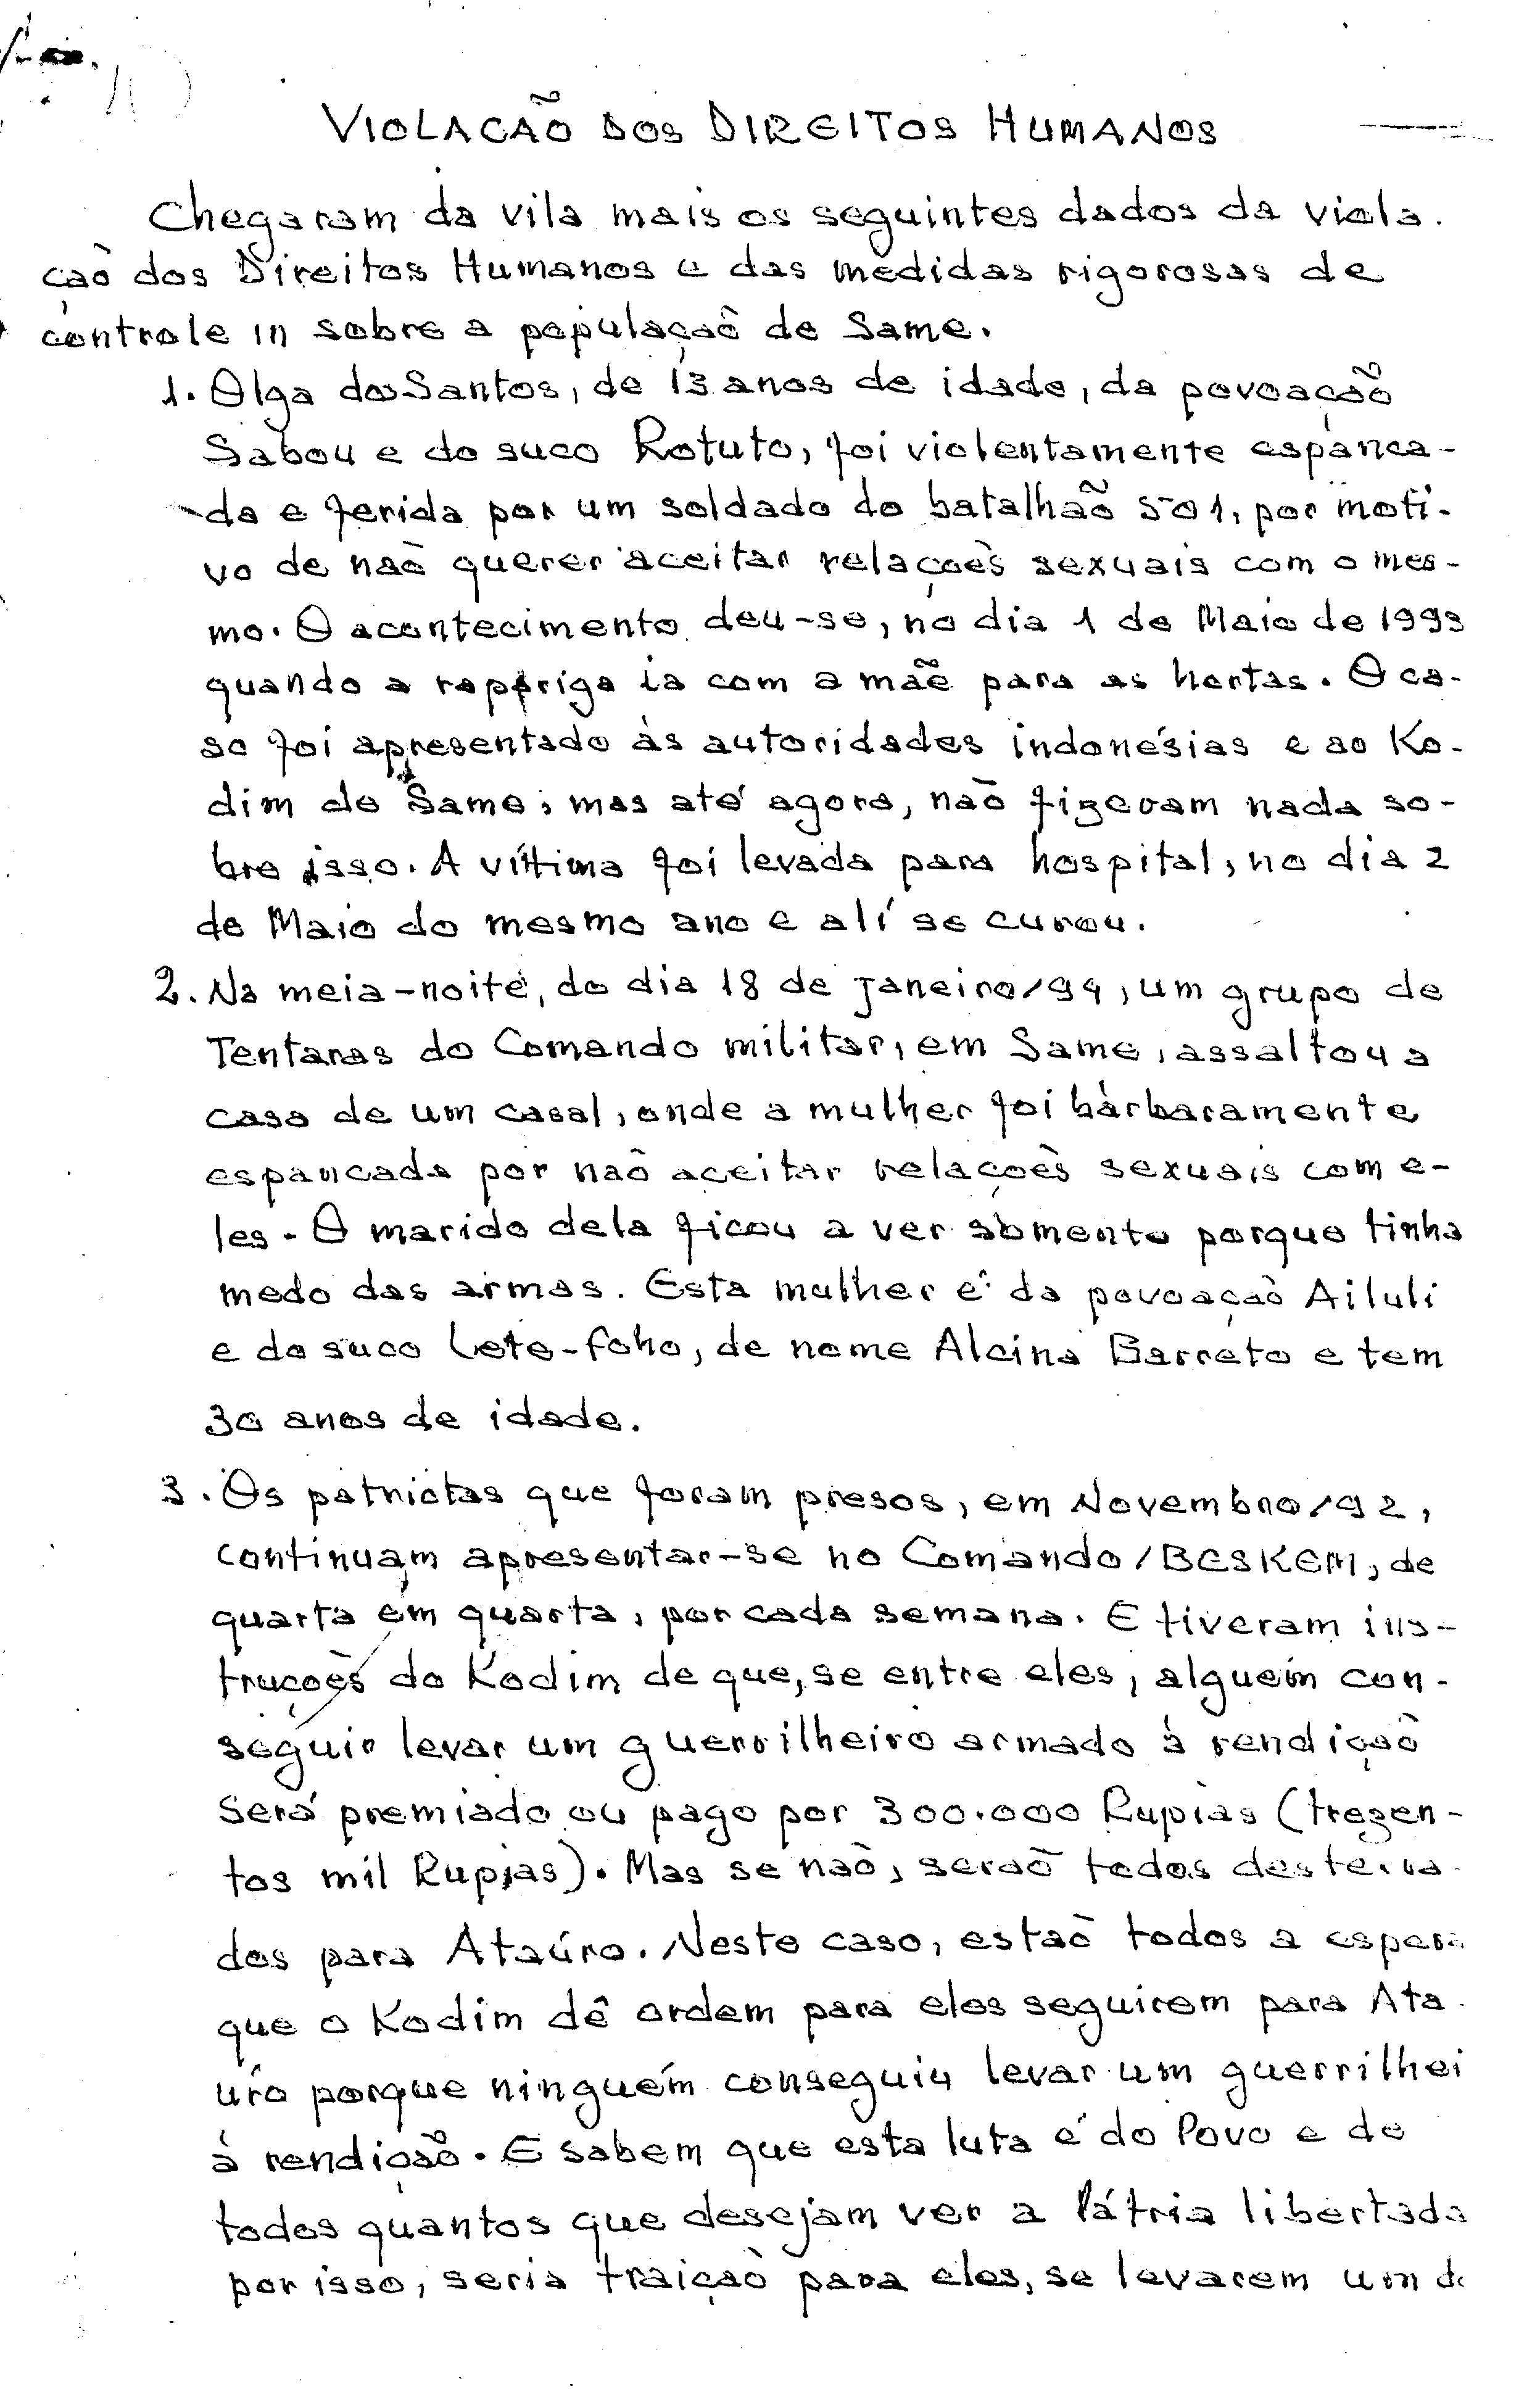 VIOLACÃO DOS DIREITOS HUMANOS
Chegaram da vila mais os seguintes dados da viola.
ção dos Direitos Humanos e das medidas rigorosas de
controle in sobre a população de Same.
1. Olga dos Santos, de 13 anos de idade, da povoação
Sabou e do suco Rotuto, foi violentamente espanca-
da e ferida por um soldado do batalhão 501, por moti-
vo de não querer aceitar relações sexuais com o mes-
mo. O acontecimento deu-se, no dia 1 de Maio de 1993
quando a rapariga ia com a mãe para as hortas. O ca-
so foi apresentado às autoridades indonésias e ao Ko-
dim de Same; mas até agora, não fizeram nada so-
bre isso. A víttima foi levada para hospital, no dia 2
de Maio do mesmo ano e alí se curou.
2. Na meia-noite, do dia 18 de Janeiro/94, um grupo de
Tentaras do Comando militar, em Same, assaltou a
casa de um casal, onde a mulher foi bàrbaramente
espancada por não aceitar relações sexuais com e-
les. O marido dela ficou a ver sòmente porque tinha
medo das armas. Esta mulher é da povoação Ailuli
e do suco Lete-foho, de nome Alcina Barreto e tem
30 anos de idade.
3. Os patriotas que foram presos, em Novembro/92,
continuam apresentar-se no Comando/BESKEM, de
quarta em quarta, por cada semana. E tiveram ins-
truções do Kodim de que, se entre eles, alguém con-
seguir levar um guerrilheiro armado à rendição
será premiado ou pago por 300.000 Rupias (trezen-
tos mil Rupias). Mas se não, serão todos desterra-
dos para Ataúro. Neste caso, estão todos a espera
que o Kodim dê ordem para eles seguirem para Ata-
úro porque ninguém conseguiu levar um guerrilhei
à rendição. E sabem que esta luta é do Povo e de
todos quantos que desejam ver a Pátria libertada
por isso, seria traição para eles, se levarem um d